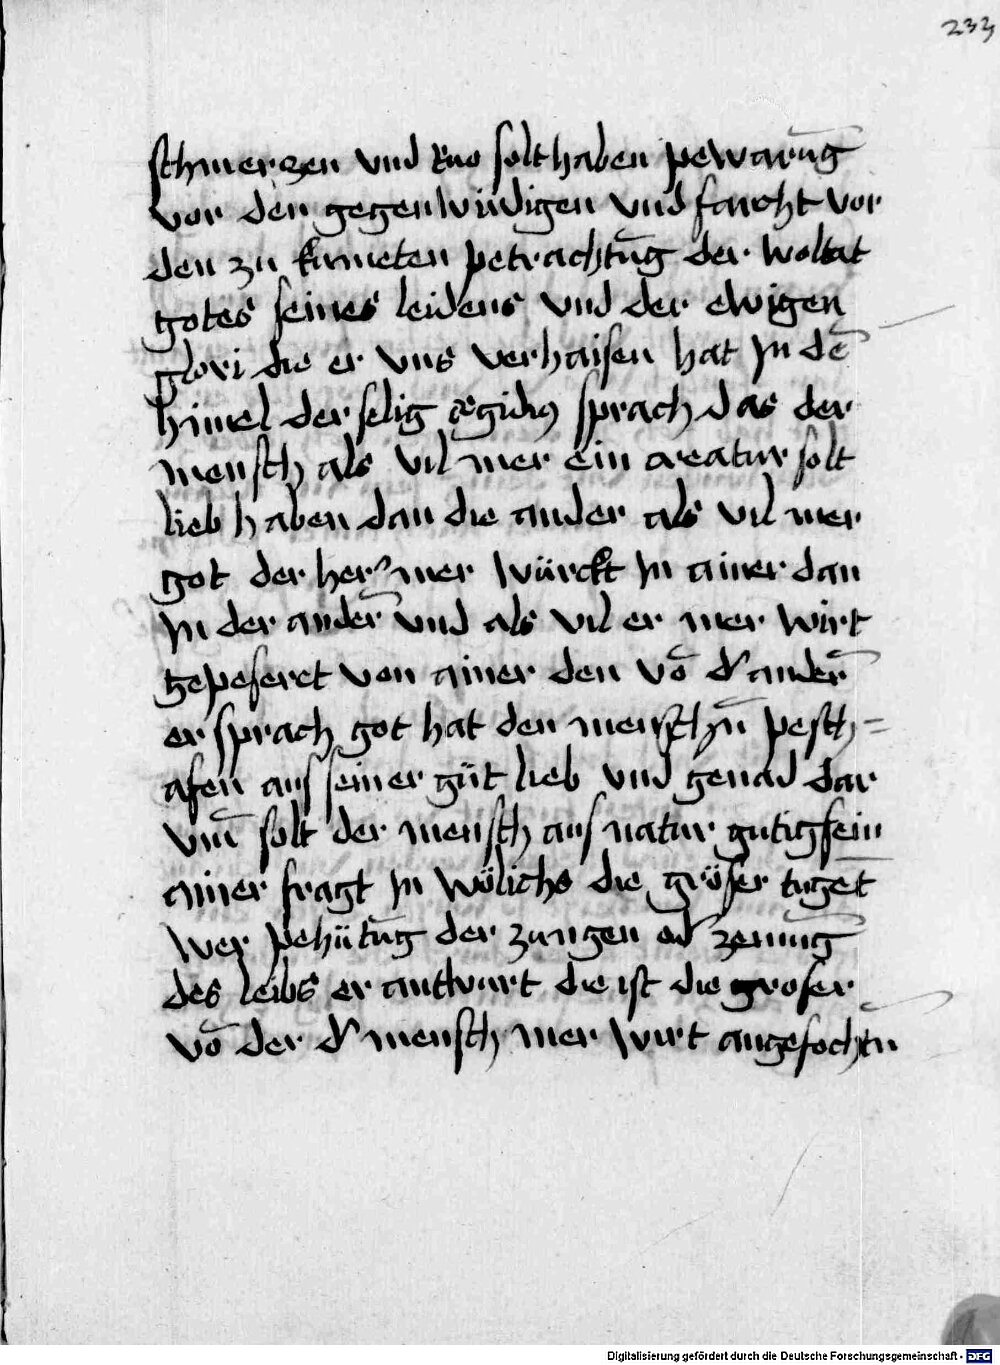 233
schmerzen vnd Ruo solt haben pewarūg
vor den gegenwirdigen vnd farcht vor
den zu kumeten petrachtūg der woltat
gotes seines leidens vnd der ewigen
glori die er vns verhaisen hat In dē
himel der selig egidius sprach das der
mensch als vil mer ein creatur solt
lieb haben dan die ander als vil mer
got der her mer würckt In ainer dan
In der anderē vnd als vil er mer wirt
gepeseret von ainer den vō d' anderē
er sprach got hat den menschn̄ pesch=
afen aus seiner güt lieb vnd genad dar
vm̄ solt der mensch aus natur gutig sein
ainer fragt In wöliche die gröser tuget̄
wer pehütūg der zungen od' zemūg
des leibs er antwurt die ist die groser
vō der d' mensch mer wirt angefochtn̄
Digitalisierung gefördert durch die Deutsche Forschungsgemeinschaft - DFG